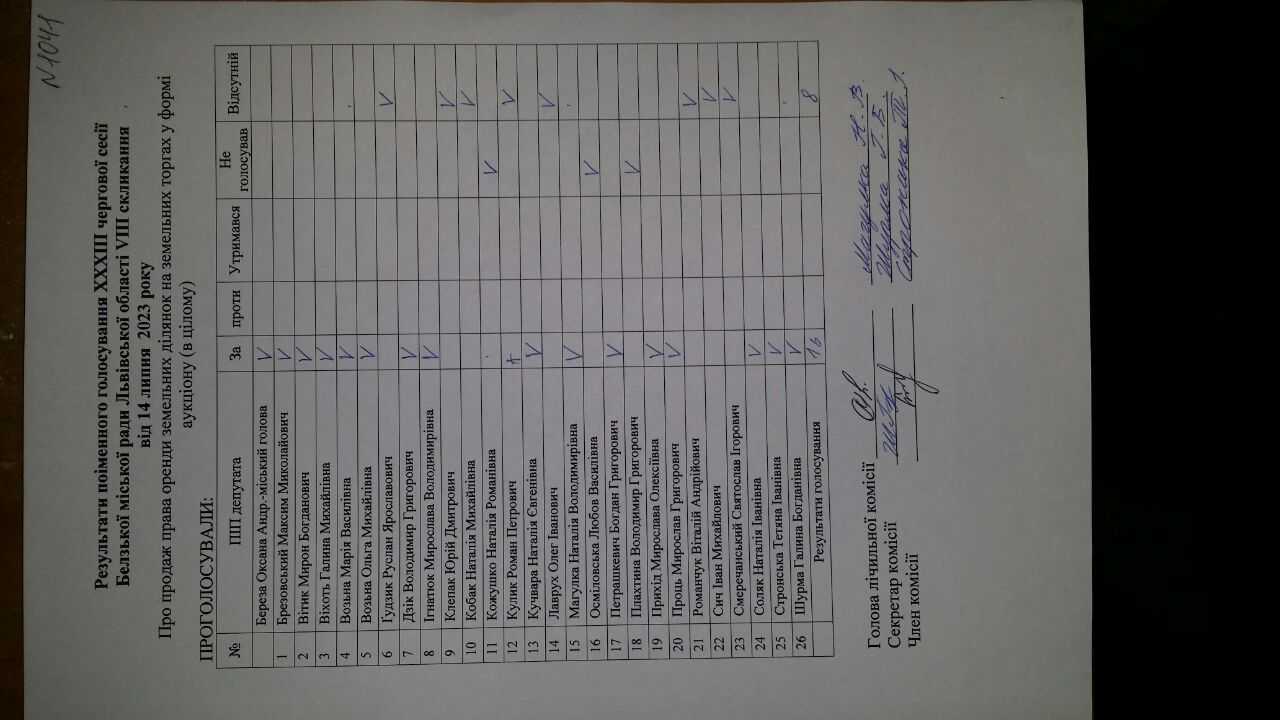 N1041
Результати поіменного голосування XXXIII чергової сесії
Белзької міської ради Львівської області VIII скликання
від 14 липня 2023 року
Про продаж права оренди земельних ділянок на земельних торгах у формі
аукціону (в цілому)
ПРОГОЛОСУВАЛИ:
№ ПІП депутата За проти Утримався Не голосував Відсутній
Береза Оксана Андр.-міський голова V
1 Березовський Максим Миколайович V
2 Вітик Мирон Богданович V
3 Віхоть Галина Михайлівна V
4 Возьна Марія Василівна V
5 Возьна Ольга Михайлівна V
6 Гудзик Руслан Ярославович V
7 Дзік Володимир Григорович V
8 Ігнатюк Мирослава Володимирівна V
9 Клепак Юрій Дмитрович V
10 Кобак Наталія Михайлівна V
11 Кожушко Наталія Романівна V
12 Кулик Роман Петрович V
13 Кучвара Наталія Євгенівна V
14 Лаврух Олег Іванович V
15 Магулка Наталія Володимирівна V
16 Осміловська Любов Василівна V
17 Петрашкевич Богдан Григорович V
18 Плахтина Володимир Григорович V
19 Прихід Мирослава Олексіївна V
20 Проць Мирослав Григорович V
21 Романчук Віталій Андрійович V
22 Сич Іван Михайлович V
23 Смеречанський Святослав Ігорович V
24 Соляк Наталія Іванівна V
25 Стронська Тетяна Іванівна V
26 Шурма Галина Богданівна V
Результати голосування 16 8
Голова лічильної комісії Магулка Н.В.
Секретар комісії Шурма Г.Б.
Член комісії Т.І.